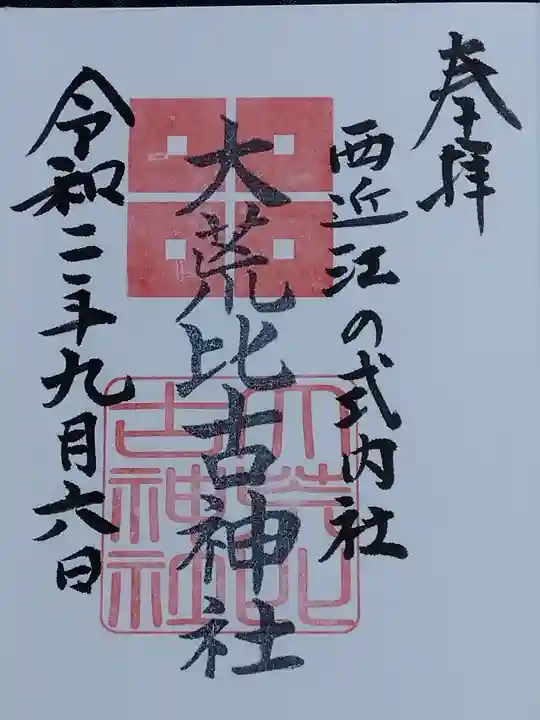 奉拝
西近江の式内社
大荒比古神社
大荒比古神社
令和二年九月六日